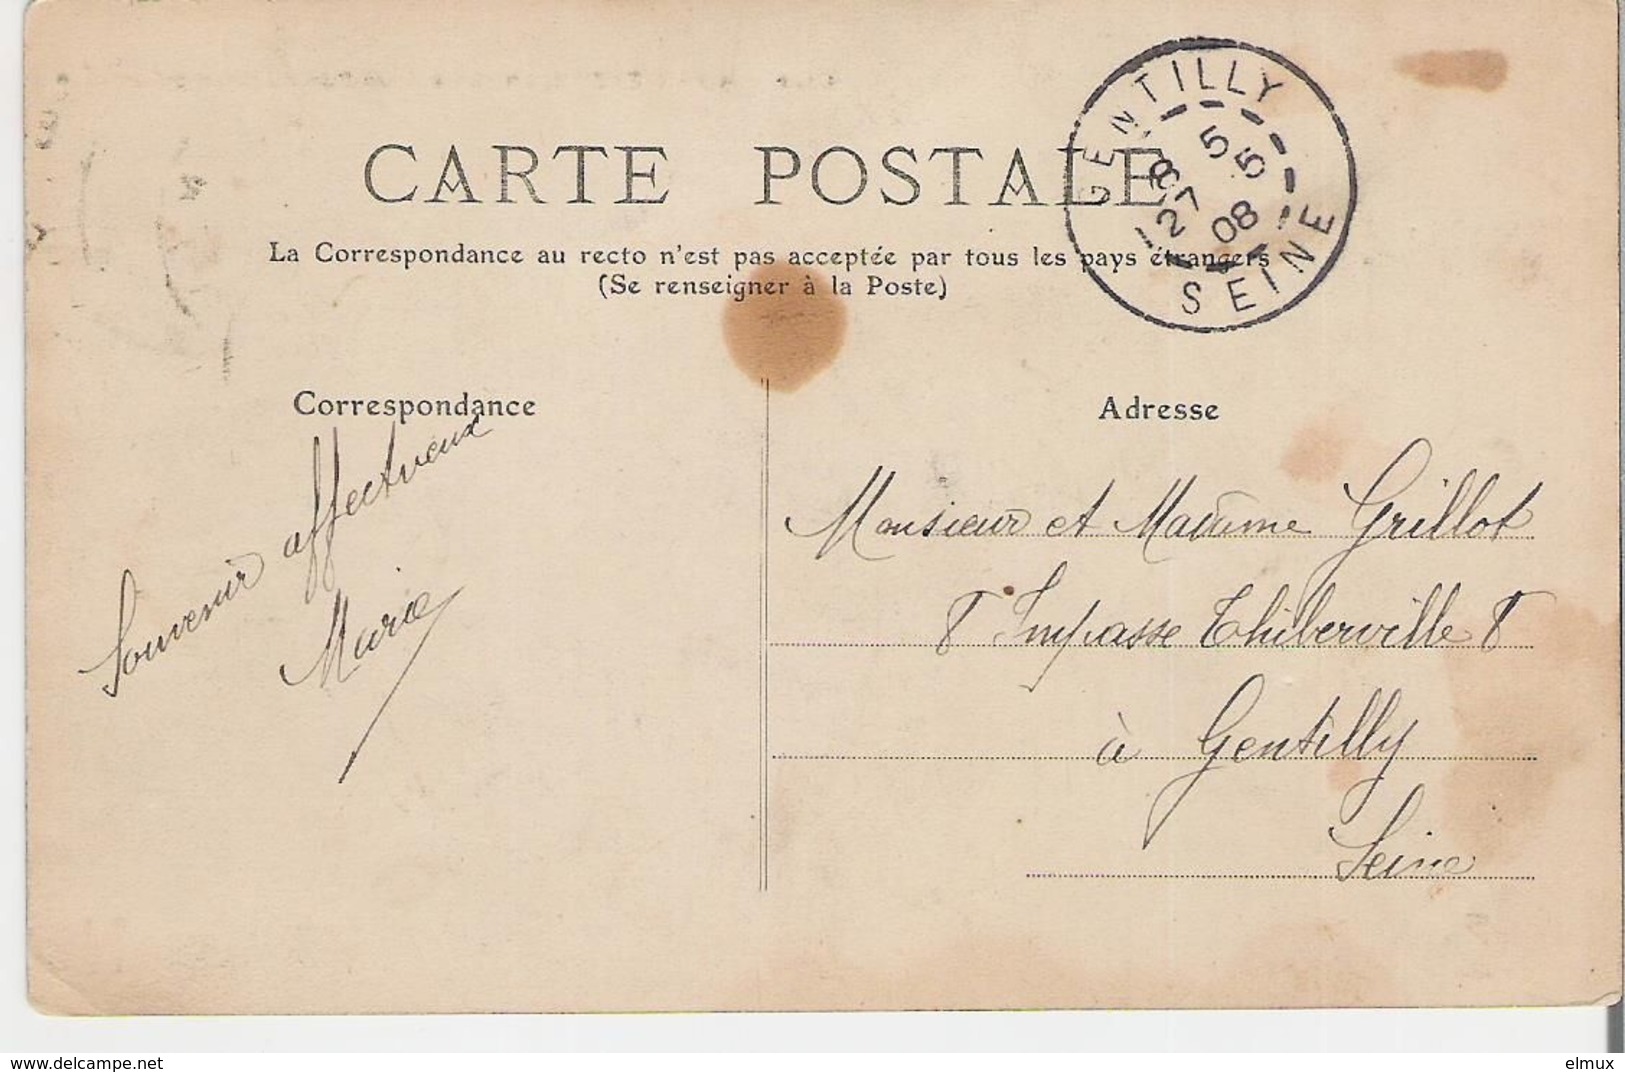 CARTE POSTALE
La Correspondance au recto n'est pas acceptée par tous les pays étrangers
(Se renseigner à la Poste)
GENTILLY
8 5
27 5
08
SEINE
Correspondance
Souvenir affectueux
Marie
Adresse
Monsieur et Madame Grillot
8 Impasse Thiberville 8
à Gentilly
Seine
www.delcampe.net
elmux